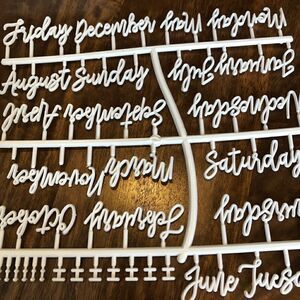 Friday December May Monday
August Sunday January July
April September Wednesday
November March Saturday
October February Thursday
June Tues